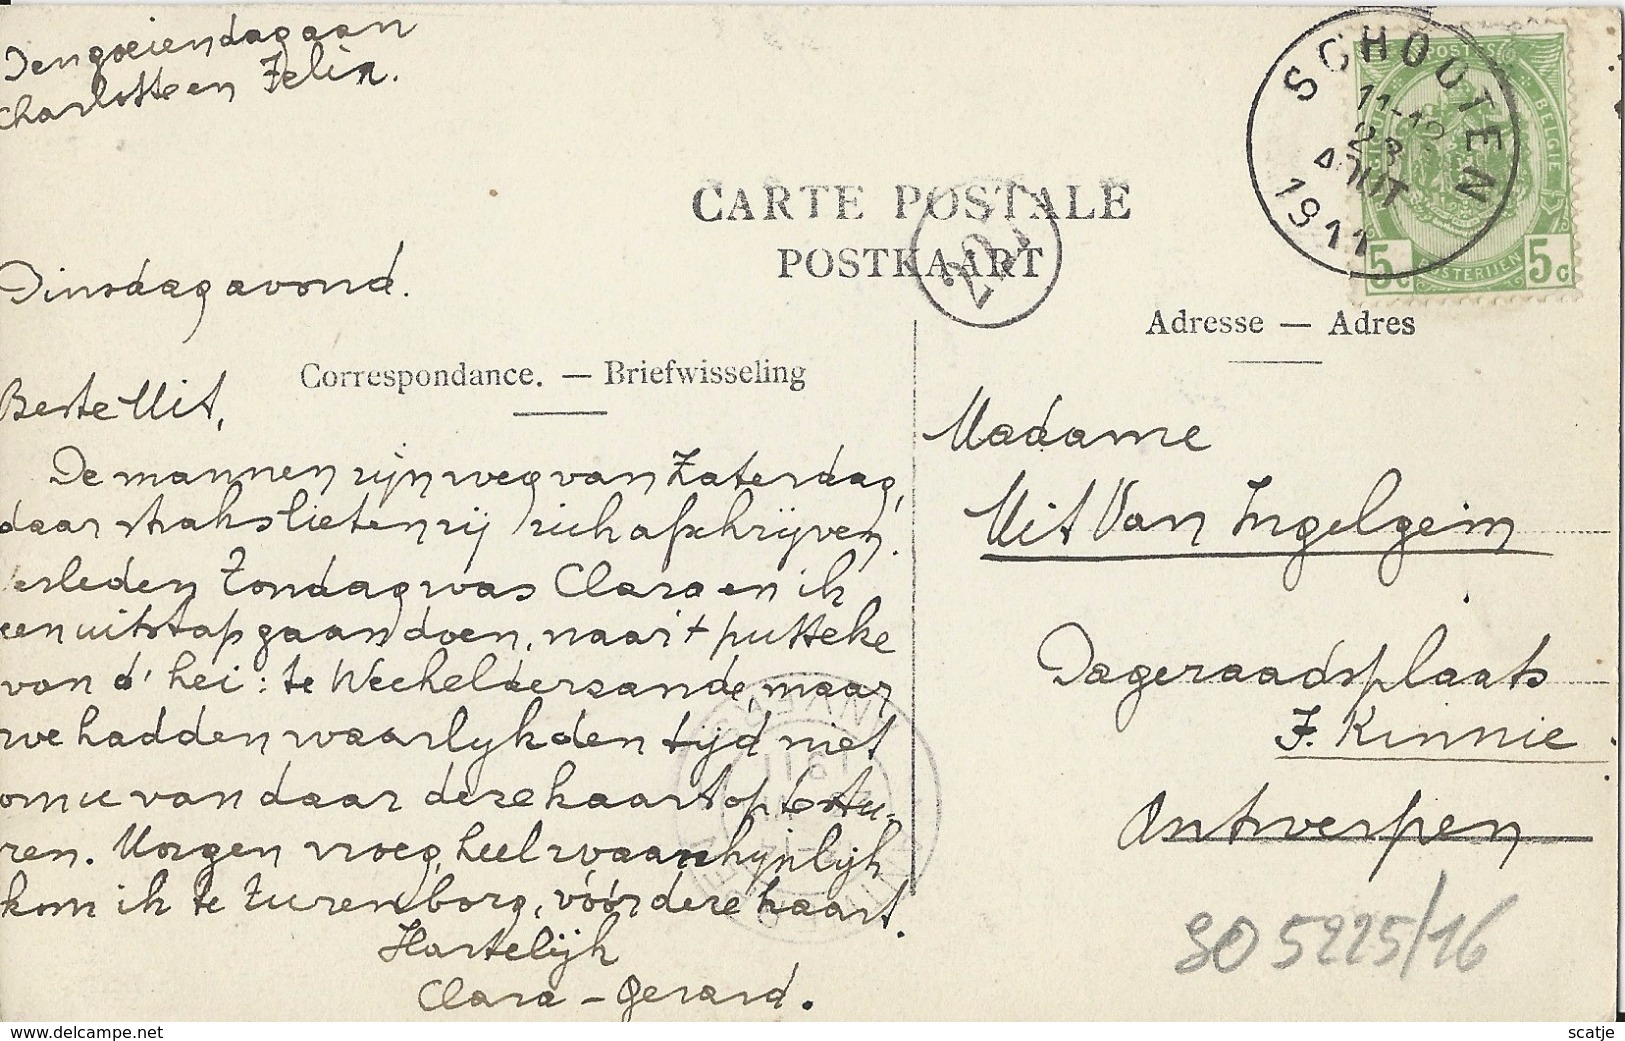 Den goeiendag aan
Charlotte en Felix.
SCHOOTEN
11-12
23
AOUT
1911
POSTES
BELGIE
5c
POSTERIJEN
5c
CARTE POSTALE
POSTKAART
Dinsdag avond.
Adresse — Adres
Correspondance. — Briefwisseling
Beste Mit,
De mannen zijn weg van Zaterdag,
daar straks lieten zij zich afschrijven.
erleden Zondag was Clara en ik
een uitstap gaan doen, naar 't putteke
van d' hei: te Wechelderzande, maar
we hadden waarlijk den tijd niet
om u van daar deze kaart op te stu-
ren. Morgen vroeg, heel waarschijnlijk
kom ik te Zurenborg, vóór deze kaart.
Hartelijk
Clara - Gerard.
Madame
Mit Van Ingelgem
Dageraadsplaats
F. Kinnie
Antwerpen
SO 5225/16
delcampe.net
scatje